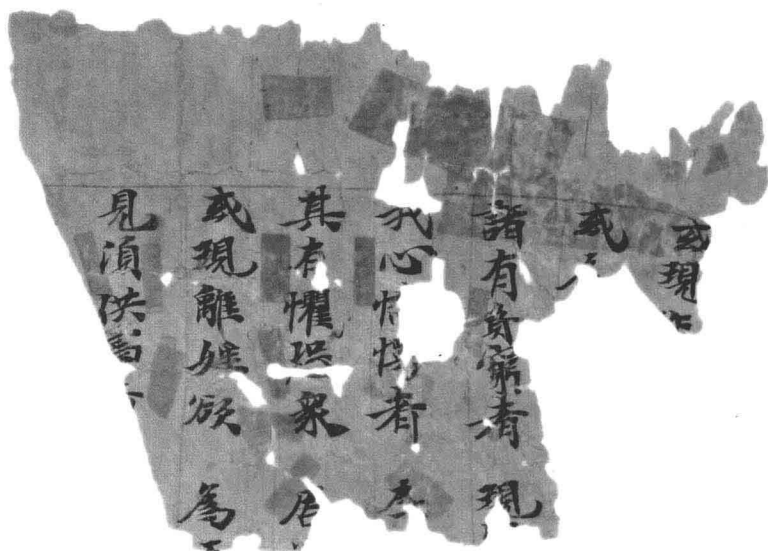 或現作
或
諸有貧窮者 現
我心憍慢者 為
其有懼恐衆 居
或現離婬欲 為
見湏供事